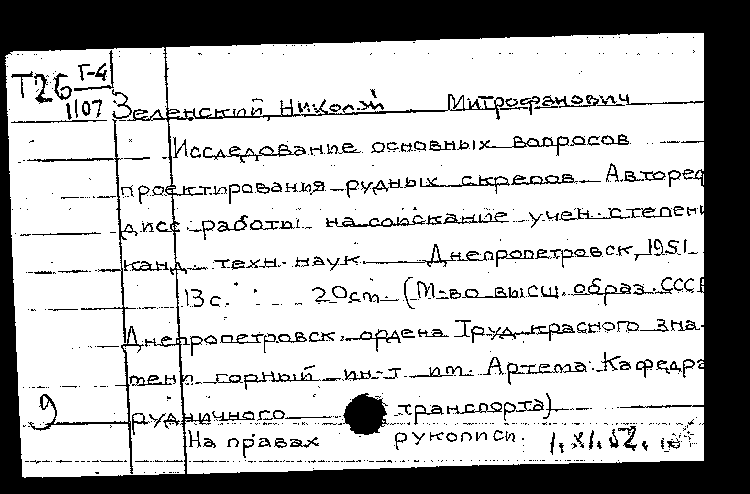 Т26 Г-4
1107
Зеленский, Николай Митрофанович
Исследование основных вопросов
проектирования рудных скрепов. Автореф
дисс. работы на соискание учен. степени
канд. техн. наук. Днепропетровск, 1951
13с. 20см. (М-во высш. образ. СССР
Днепропетровск. ордена Труд. красного зна-
мени горный ин-т им. Артема. Кафедра
9 рудничного транспорта)
На правах рукописи. 1.XI.52.